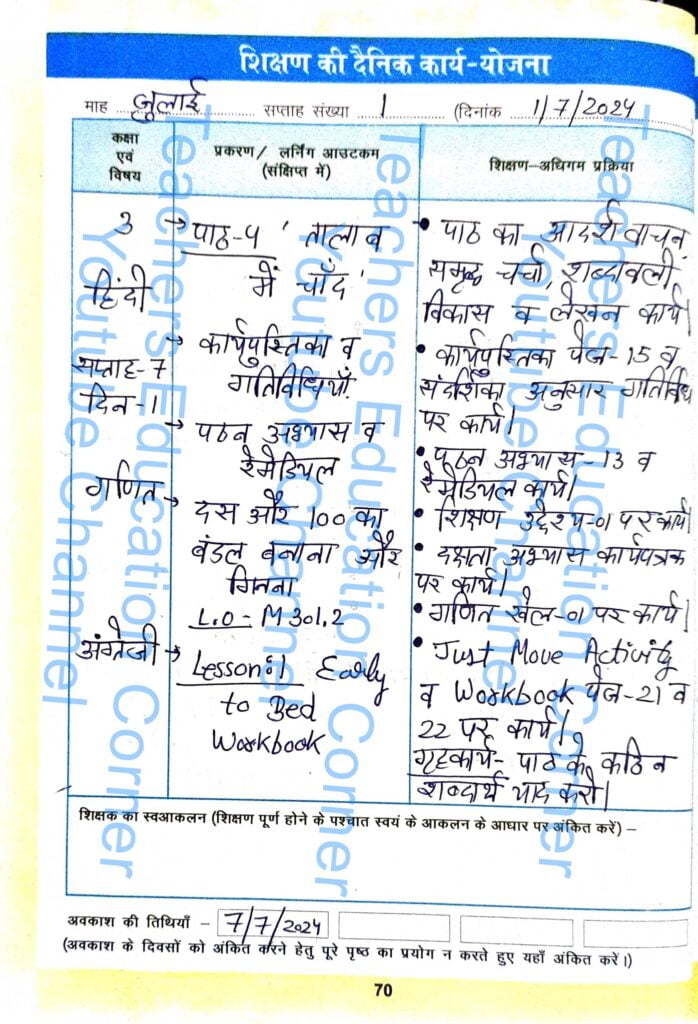 शिक्षण की दैनिक कार्य-योजना
माह जुलाई सप्ताह संख्या 1 (दिनांक 1/7/2024
कक्षा
एवं
विषय
प्रकरण/ लर्निंग आउटकम
(संक्षिप्त में)
शिक्षण-अधिगम प्रक्रिया
3
हिंदी
सप्ताह-7
दिन-1
गणित
अंग्रेजी
→ पाठ-५ 'तालाब
में चाँद'
→ कार्यपुस्तिका व
गतिविधियाँ
→ पठन अभ्यास व
रेमेडियल
→ दस और 100 का
बंडल बनाना और
गिनना
L.O - M 301.2
→ Lesson:1 Early
to Bed
Workbook
• पाठ का आदर्श वाचन,
समृद्ध चर्चा, शब्दावली
विकास व लेखन कार्य।
• कार्यपुस्तिका पेज-15 व
संदर्शिका अनुसार गतिविधि
पर कार्य।
• पठन अभ्यास-13 व
रेमेडियल कार्य।
• शिक्षण उद्देश्य-01 पर कार्य।
• दक्षता अभ्यास कार्यपत्रक
पर कार्य।
• गणित खेल-01 पर कार्य।
• Just Move Activity
व Workbook पेज-21 व
22 पर कार्य।
गृहकार्य- पाठ के कठिन
शब्दार्थ याद करो।
शिक्षक का स्वआकलन (शिक्षण पूर्ण होने के पश्चात स्वयं के आकलन के आधार पर अंकित करें) –
अवकाश की तिथियाँ - 7/7/2024
(अवकाश के दिवसों को अंकित करने हेतु पूरे पृष्ठ का प्रयोग न करते हुए यहाँ अंकित करें।)
70
Teachers Education Corner
Youtube Channel
Teachers Education Corner
Youtube Channel
Teachers Education Corner
Youtube Channel